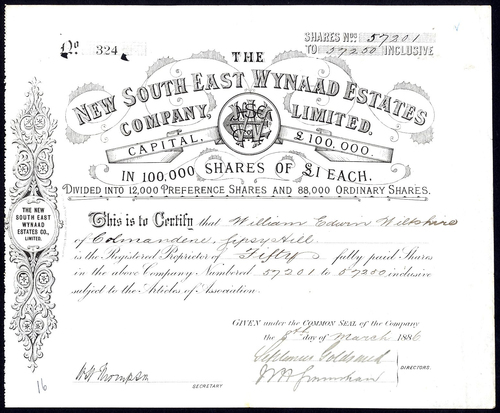 No. 324
SHARES Nos. 57201
TO 57250 INCLUSIVE
THE
NEW SOUTH EAST WYNAAD ESTATES
COMPANY, LIMITED.
CAPITAL, £100,000.
IN 100,000 SHARES OF £1 EACH.
DIVIDED INTO 12,000 PREFERENCE SHARES AND 88,000 ORDINARY SHARES.
THE NEW
SOUTH EAST
WYNAAD
ESTATES CO.,
LIMITED.
This is to Certify that William Edwin Wiltshire
of Colmandene, Gipsy Hill
is the Registered Proprietor of Fifty fully paid Shares
in the above Company Numbered 57201 to 57250 inclusive
subject to the Articles of Association.
GIVEN under the COMMON SEAL of the Company
the 8th day of March 1886
DIRECTORS
SECRETARY
16